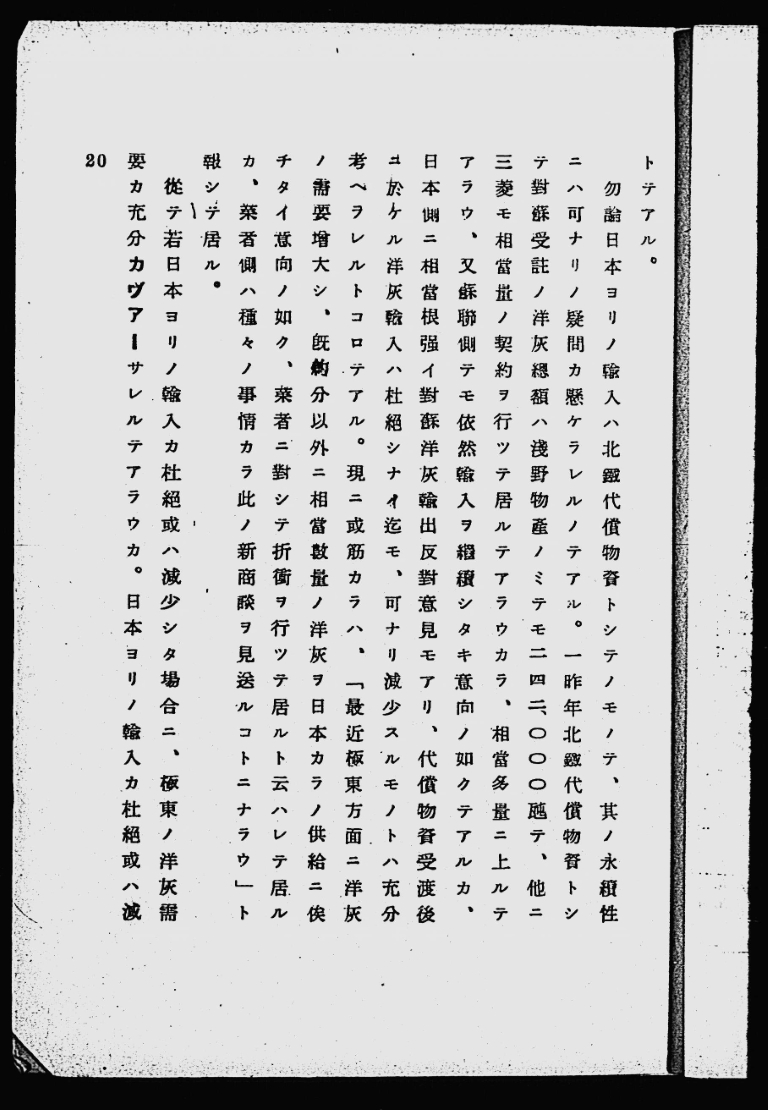 トテアル。
勿論日本ヨリノ輸入ハ北鐵代償物資トシテノモノテ、其ノ永續性
ニハ可ナリノ疑問カ懸ケラレルノテアル。一昨年北鐵代償物資トシ
テ對蘇受註ノ洋灰總額ハ淺野物產ノミテモ二四二、〇〇〇瓲テ、他ニ
三菱モ相當量ノ契約ヲ行ツテ居ルテアラウカラ、相當多量ニ上ルテ
アラウ、又蘇聯側テモ依然輸入ヲ繼續シタキ意向ノ如クテアルカ、
日本側ニ相當根强イ對蘇洋灰輸出反對意見モアリ、代償物資受渡後
ニ於ケル洋灰輸入ハ杜絕シナイ迄モ、可ナリ減少スルモノトハ充分
考ヘラレルトコロテアル。現ニ或筋カラハ、「最近極東方面ニ洋灰
ノ需要增大シ、旣約分以外ニ相當數量ノ洋灰ヲ日本カラノ供給ニ俟
チタイ意向ノ如ク、業者ニ對シテ折衝ヲ行ツテ居ルト云ハレテ居ル
カ、業者側ハ種々ノ事情カラ此ノ新商談ヲ見送ルコトニナラウ」ト
報シテ居ル。
從テ若日本ヨリノ輸入カ杜絕或ハ減少シタ場合ニ、極東ノ洋灰需
要カ充分カヴアーサレルテアラウカ。日本ヨリノ輸入カ杜絕或ハ減
20